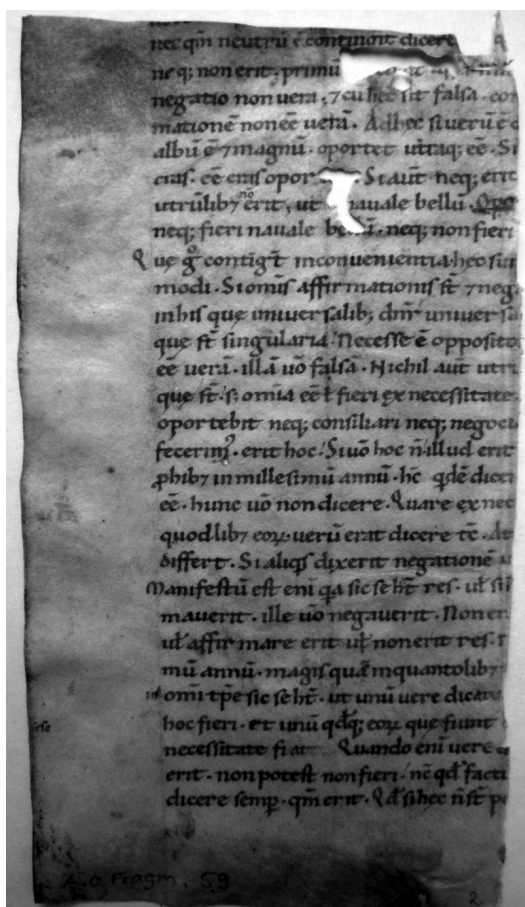 nec qm̄ neutrū ē contingit dicere q
neq; non erit. primū
negatio non vera. ⁊ cū hec sit falsa. con
mationē non eē verā. Ad hec si verū ē d
albū ē ⁊ magnū. oportet utraq; eē. Si
cras. eē cras opor Si aut̄ neq; erit
utrūlibꝫ no erit, ut navale bellū. Opo
neq; fieri navale bellū. neq; non fieri
Quę gͦ contigt̄ inconvenientia hec sun
modi. Si omīs affirmationis st̄ ⁊ neg
in his quę universalib; dm̄r universa
quę st̄ singularia. Necesse ē opposito
eē verā. illā uō falsā. Nichil aut̄ utrū
quę st̄. s; omīa eē ł fieri ex necessitate
oportebit neq; consiliari neq; negoci
fecerim᷒. erit hoc. Si uō hoc n̄ illud erit
phibꝫ in millesimū annū. hc̄ qdē dicer
eē. hunc uō non dicere. Quare ex nec
quodlibꝫ eoꝝ. verū erat dicere tc̄. At
differt. Si aliqs dixerit negationē
Manifestū est eni qa sic se hn̄t res. ul̄ si
maverit. ille uō negaverit. Non en
ul̄ affirmare erit ul̄ non erit res.
mū annū. magis quā in quantolibꝫ
in omi tp̄e sic se ht̄. ut unū vere dicare
hoc fieri. et unū qdq; eoꝝ quę fiunt
necessitate fiat Quando enī vere
erit. non potest non fieri. nc̄ qd̄ facti
dicere semp̄. qm̄ erit. Qd̄ si hec n̄ st̄ po
Fragm. 69
2